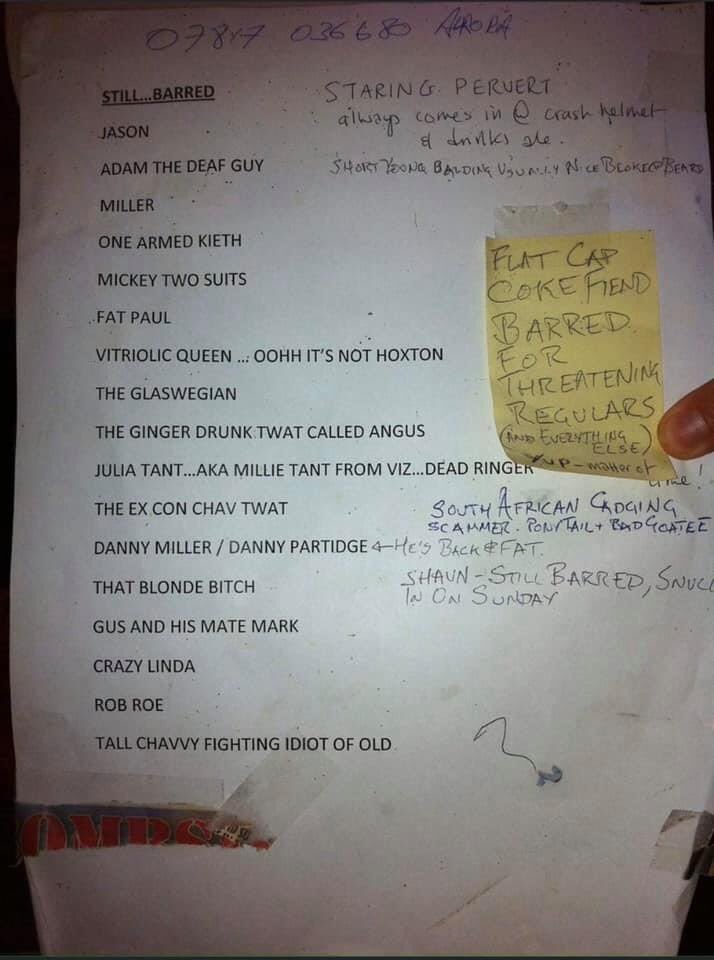 07847 036680 AURORA
STILL...BARRED
STARING PERVERT
always comes in @ crash helmet
& drinks ale.
JASON
ADAM THE DEAF GUY
SHORT YOUNG BALDING USUALLY NICE BLOKE @ BEARD
MILLER
ONE ARMED KIETH
MICKEY TWO SUITS
FAT PAUL
VITRIOLIC QUEEN ... OOHH IT'S NOT HOXTON
THE GLASWEGIAN
THE GINGER DRUNK TWAT CALLED ANGUS
JULIA TANT...AKA MILLIE TANT FROM VIZ...DEAD RINGER
THE EX CON CHAV TWAT
DANNY MILLER / DANNY PARTIDGE ← HE'S BACK & FAT.
THAT BLONDE BITCH
GUS AND HIS MATE MARK
CRAZY LINDA
ROB ROE
TALL CHAVVY FIGHTING IDIOT OF OLD
FLAT CAP
COKE FIEND
BARRED
FOR
THREATENING
REGULARS
(AND EVERYTHING
ELSE)
YUP - matter of
time!
SOUTH AFRICAN CADGING
SCAMMER. PONYTAIL + BAD GOATEE
SHAUN - STILL BARRED, SNUC
IN ON SUNDAY